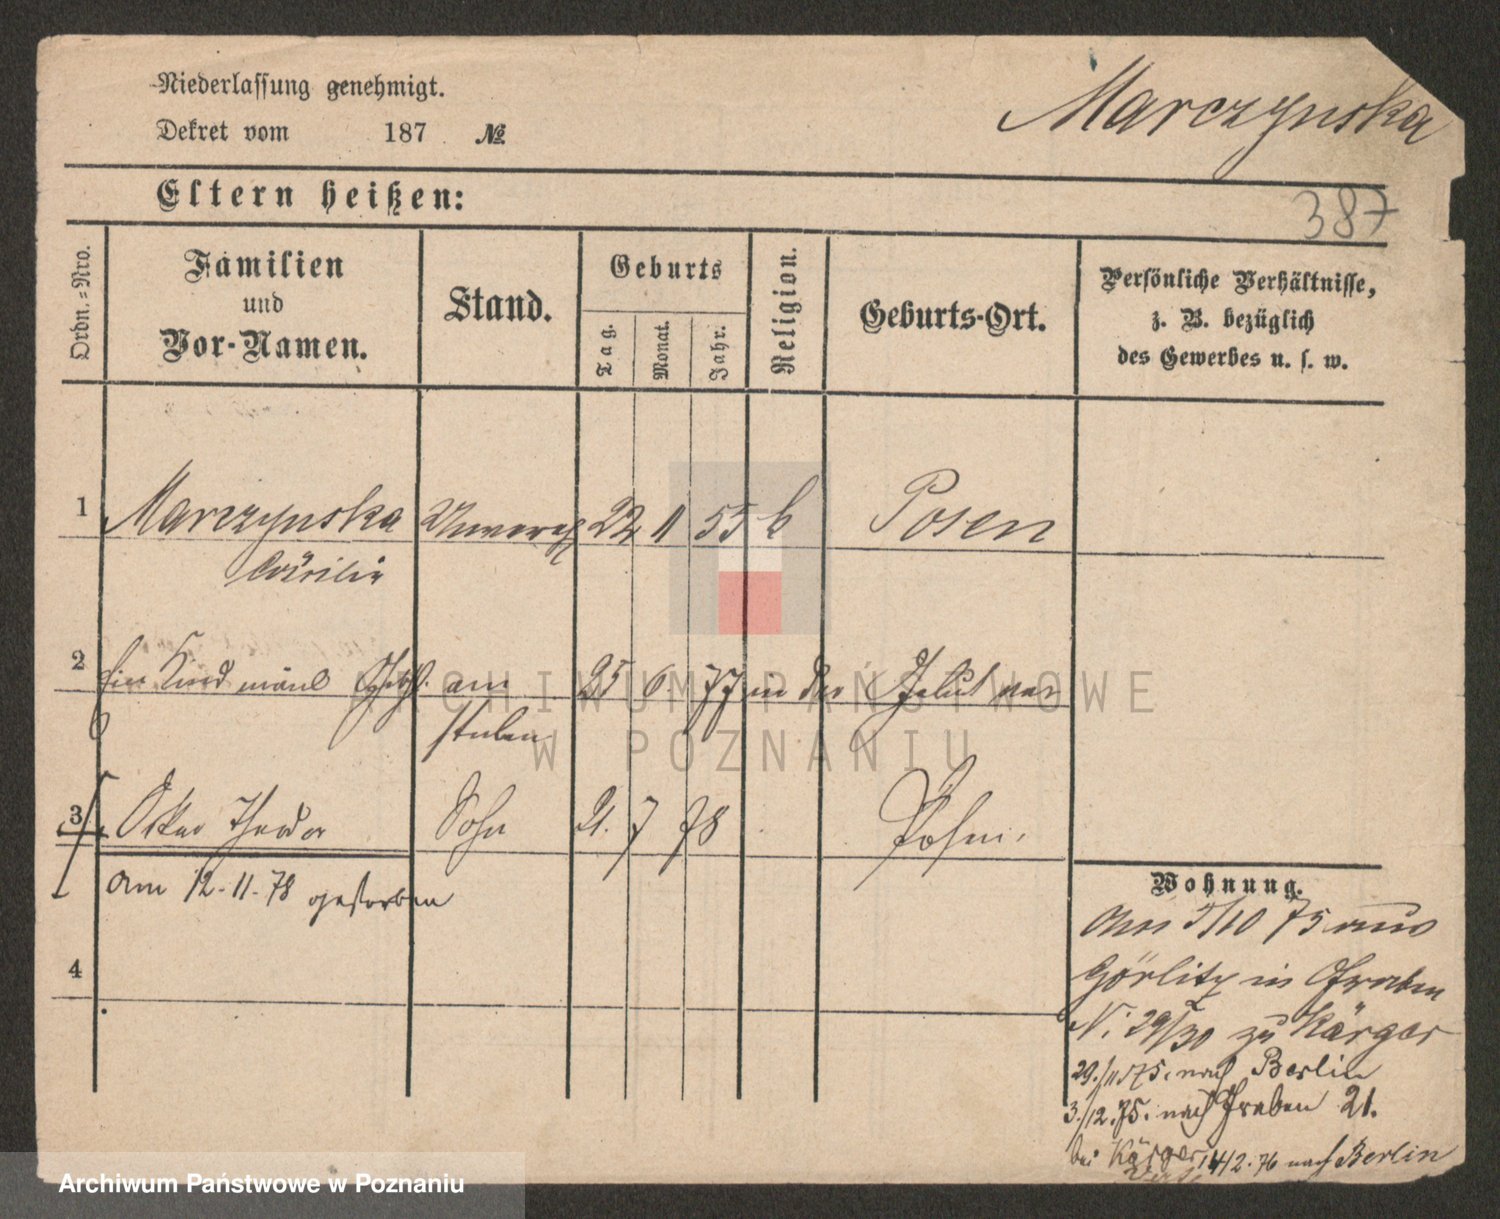 Niederlassung genehmigt.
Dekret vom 187 №
Marczynska
Eltern heißen:
387
Ordn.=Nro.
Familien
und
Vor-Namen.
Stand.
Geburts
Tag.
Monat.
Jahr.
Religion.
Geburts-Ort.
Persönliche Verhältnisse,
z. B. bezüglich
des Gewerbes u. s. w.
1 Marczynska 22 11 55 k Posen
Cäcilie
2 Ein Kind männl am 25 6. 77 in der
3 Oskar Theodor Sohn 21. 7 78 Posen.
am 12-11-78 gestorben
4
Wohnung.
Am 5/10 75 aus
Görlitz in Graben
N: 29/30 zu Kärger
29./11 75. nach Berlin
3./12.75. nach Graben 21.
bei Kärger 14/2.76 nach Berlin
ARCHIWUM PAŃSTWOWE
W POZNANIU
Archiwum Państwowe w Poznaniu